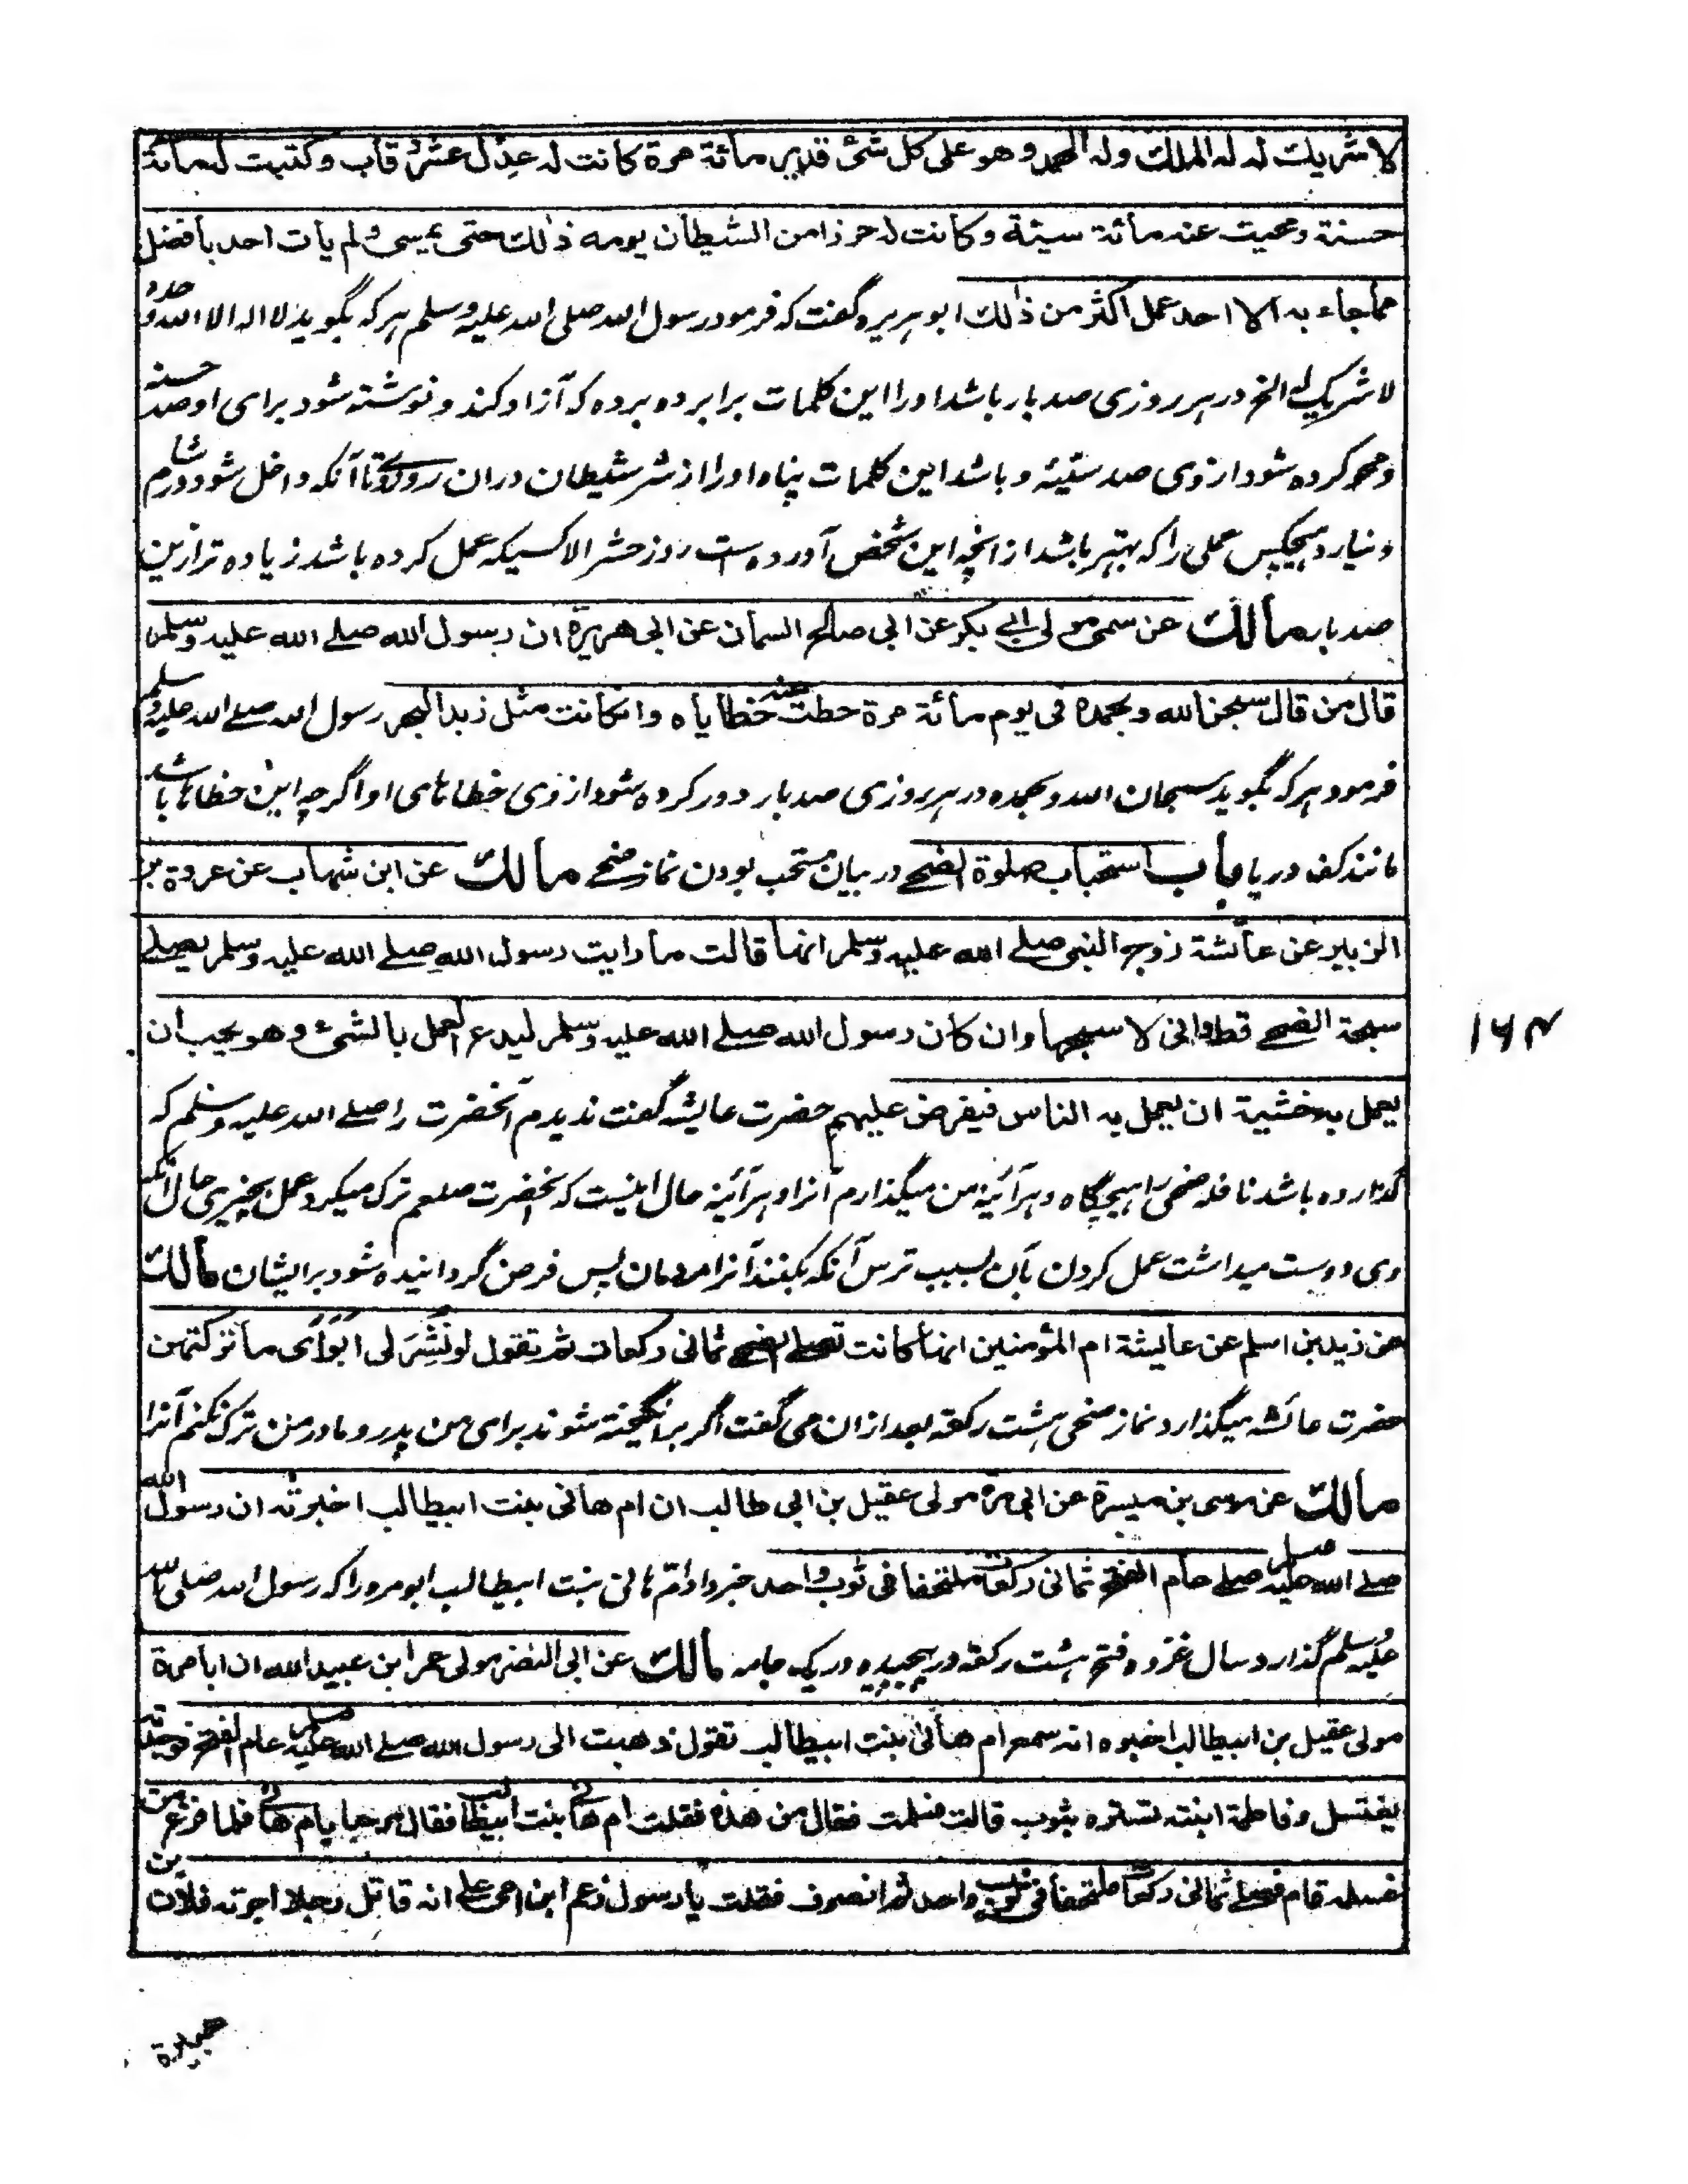 لا شريك له له الملك وله الحمد وهو على كل شئ قدير مائة مرة كانت له عدل عشر رقاب وكتبت له مائة
حسنة ومحيت عنه مائة سيئة وكانت له حرزا من الشيطان يومه ذلك حتى يمسى ولم يأت احد بأفضل
مما جاء به الا احد عمل اكثر من ذلك ابو هريره گفت كه فرمود رسول الله صلى الله عليه وسلم هر كه بگويد لا اله الا الله وحده
لا شريك له الخ در هر روزى صد بار باشد او را اين كلمات برابر ده برده كه آزاد كند و نوشته شود براى او صد حسنه
و محو كرده شود از وى صد سيئه و باشد اين كلمات پناه او را از شر شيطان در ان روز تا آنكه داخل شود در شام
و نيارد هيچكس عملى را كه بهتر باشد از انچه اين شخص آورده ست روز حشر الا كسيكه عمل كرده باشد زياده تر ازين
صد بار مالك عن سمى مولى ابى بكر عن ابى صالح السمان عن ابى هريرة ان رسول الله صلے الله عليه وسلم
قال من قال سبحن الله وبحمده فى يوم مائة مرة حطت عنه خطاياه وانكانت مثل زبد البحر رسول الله صلے الله عليه وسلم
فرمود هر كه بگويد سبحان الله وبحمده در هر روزى صد بار دور كرده شود از وى خطاهاى او اگرچه اين خطاها باشد
مانند كف دريا باب استحباب صلوة الضحے در بيان مستحب بودن نماز ضحے مالك عن ابن شهاب عن عروة بن
الزبير عن عائشة زوج النبى صلے الله عليه وسلم انها قالت ما رايت رسول الله صلے الله عليه وسلم يصلے
سبحة الضحے قط وانى لاسبحها وان كان رسول الله صلے الله عليه وسلم ليدع العمل بالشئ وهو يحب ان
يعمل به خشية ان يعمل به الناس فيفرض عليهم حضرت عايشه گفت نديدم آنحضرت را صلے الله عليه وسلم كه
گذارده باشد نافله ضحى را هيچگاه و هر آئينه من ميگذارم آنرا و هر آئينه حال اينست كه آنحضرت صلعم ترك ميكرد عمل بچيزى حال آنكه
وى دوست ميداشت عمل كردن بآن بسبب ترس آنكه بكنند آنرا مردمان پس فرض گردانيده شود بر ايشان مالك
عن زيد بن اسلم عن عايشة ام المؤمنين انها كانت تصلے الضحے ثمانى ركعات ثم تقول لو نشر لى ابواى ما تركتهن
حضرت عائشه ميگذارد نماز ضحى هشت ركعة بعد ازان مى گفت اگر برانگيخته شوند براى من پدر و مادر من ترك نكنم آنرا
مالك عن موسى بن ميسرة عن ابى مرة مولى عقيل بن ابى طالب ان ام هانى بنت ابيطالب اخبرته ان رسول الله
صلے الله عليه وسلم صلے عام الفتح ثمانى ركعات ملتحفا فى ثوب واحد خبر داد ام هانى بنت ابيطالب ابو مره را كه رسول الله صلى الله
عليه وسلم گذارد سال غزوه فتح هشت ركعة در پيچيده در يك جامه مالك عن ابى النضر مولى عمر ابن عبيد الله ان ابا مرة
مولى عقيل بن ابيطالب اخبره انه سمع ام هانى بنت ابيطالب تقول ذهبت الى رسول الله صلے الله عليه وسلم عام الفتح فوجدته
يغتسل وفاطمة ابنته تستره بثوب قالت فسلمت فقال من هذه فقلت ام هانى بنت ابيطالب فقال مرحبا يام هانى فلما فرغ من
غسله قام فصلے ثمانى ركعات ملتحفا فى ثوب واحد ثم انصرف فقلت يا رسول زعم ابن امى على انه قاتل رجلا اجرته فلان بن
۱۶۴
هبيرة